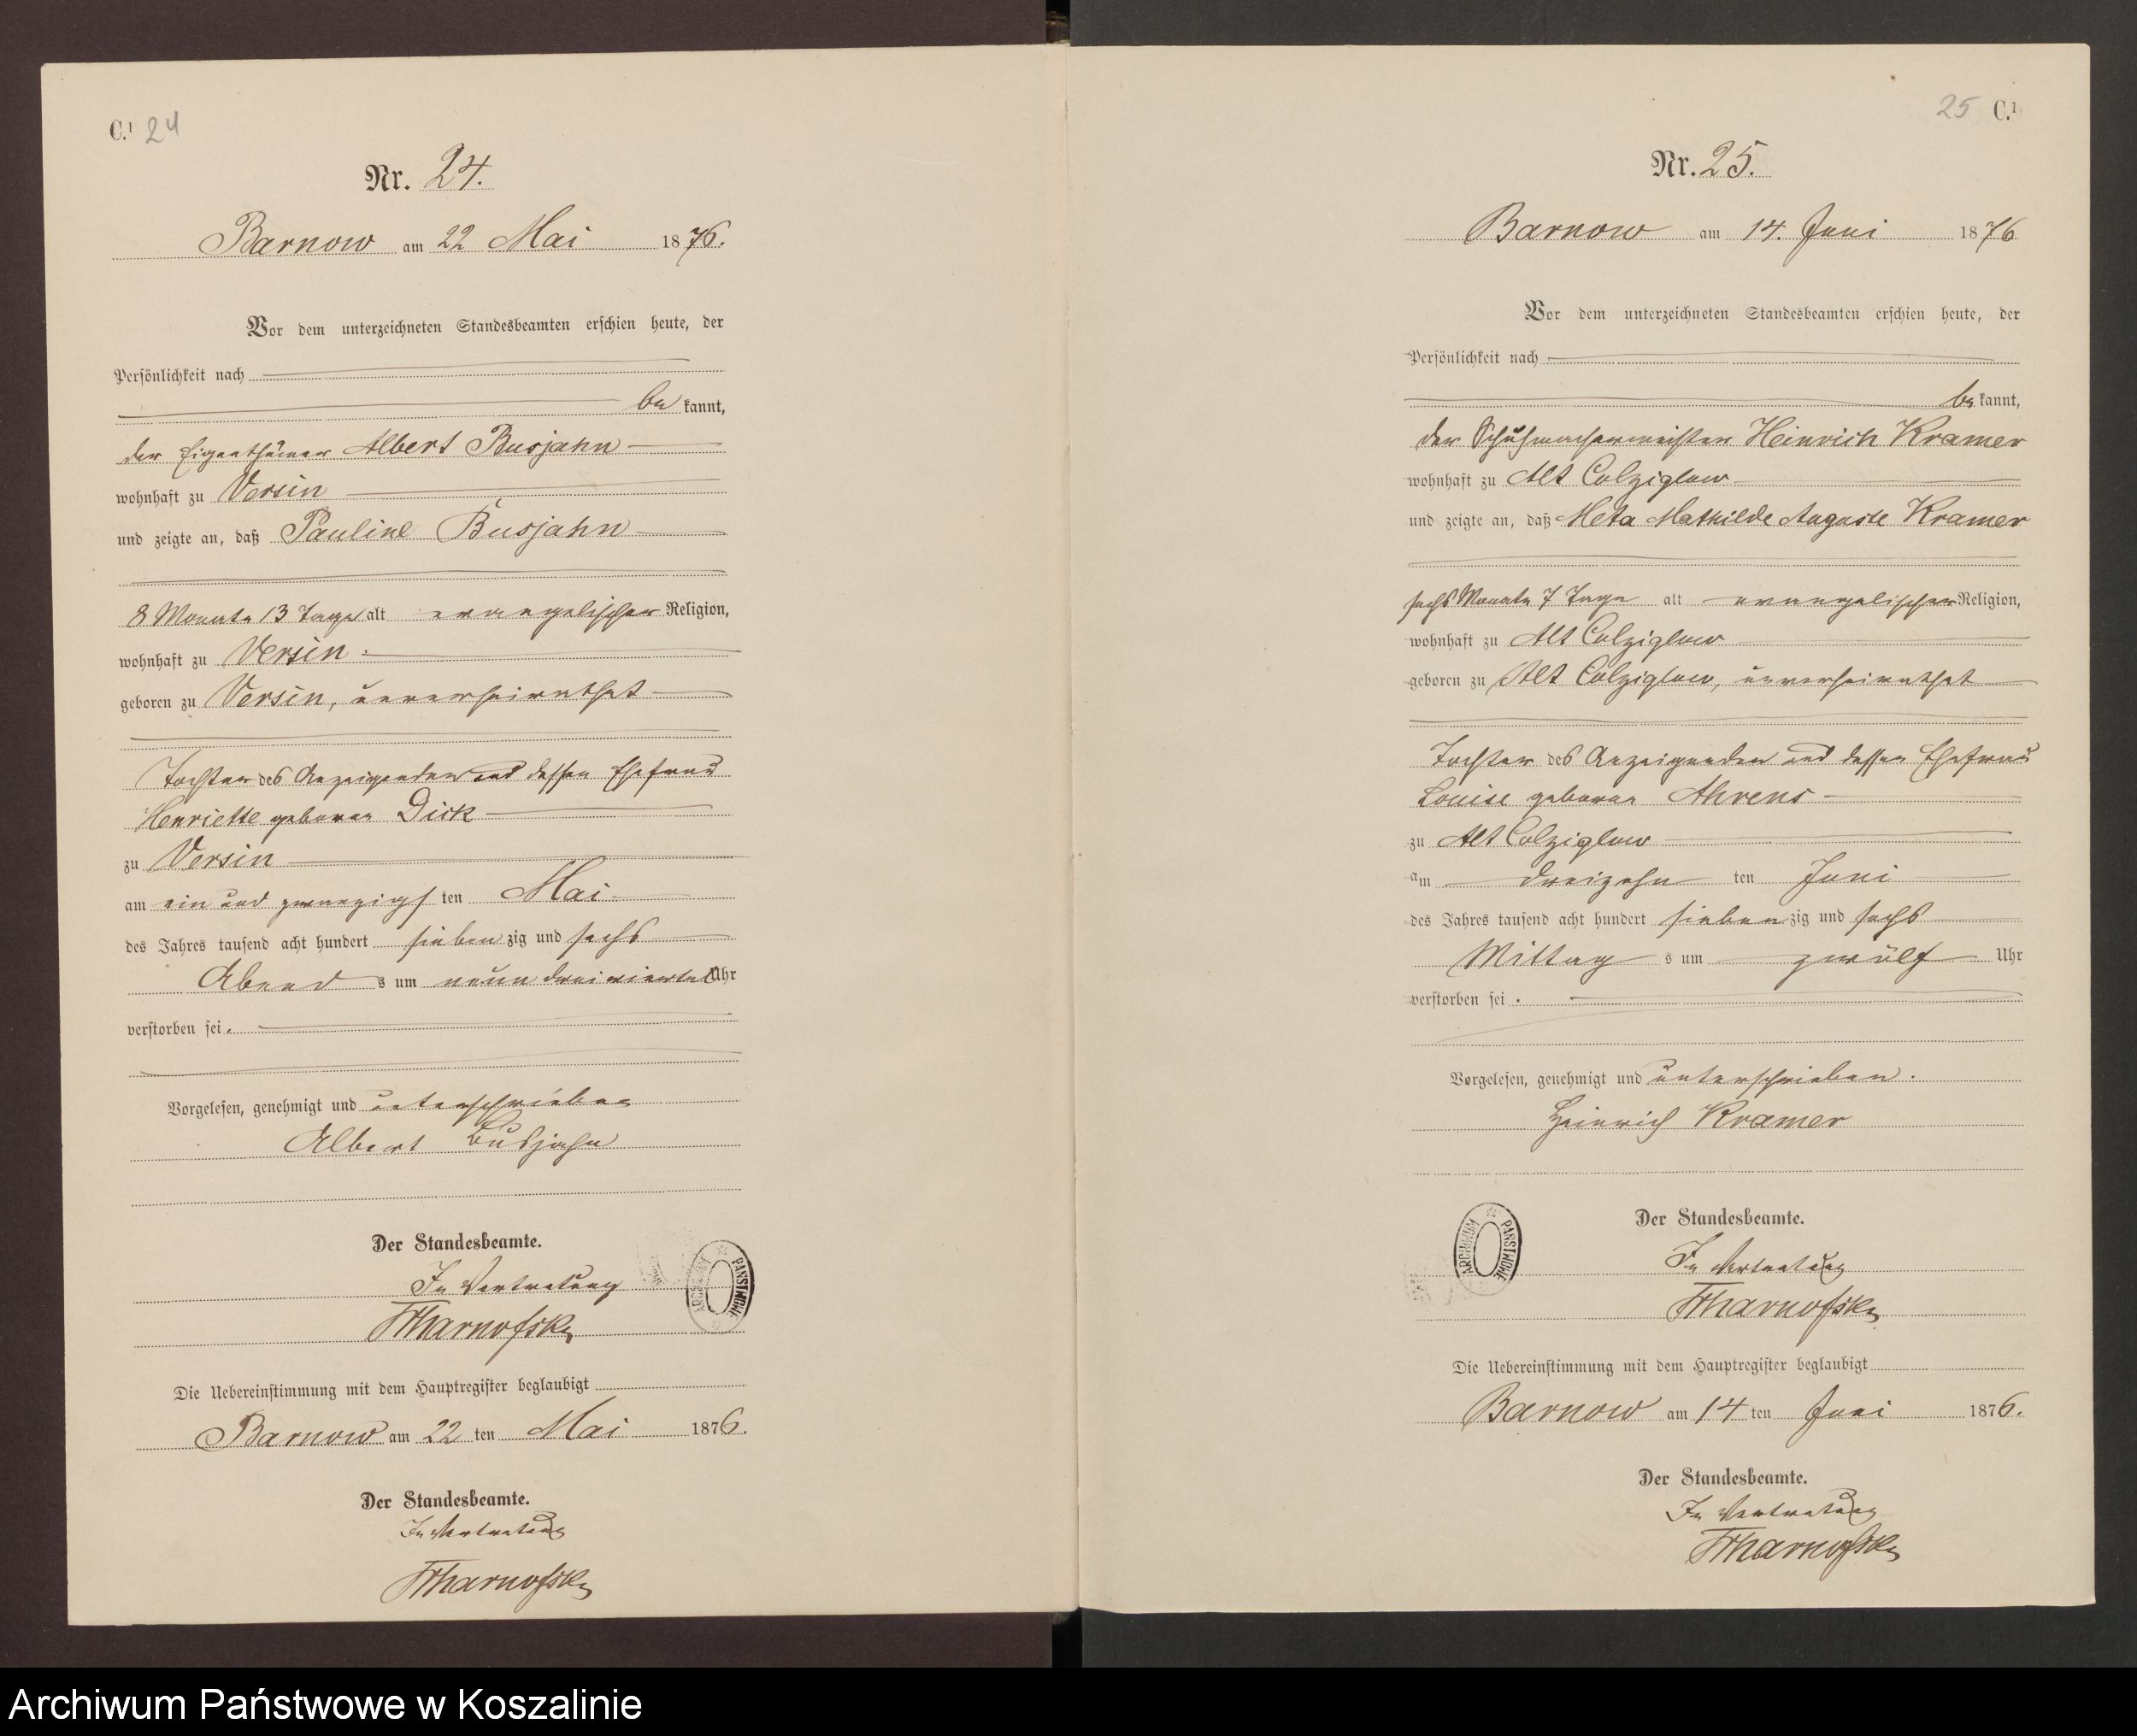 C.¹ 24
Nr. 24.
Barnow am 22 Mai 1876.
Vor dem unterzeichneten Standesbeamten erschien heute, der
Persönlichkeit nach
be kannt,
der Eigenthümer Albert Busjahn
wohnhaft zu Versin
und zeigte an, daß Pauline Busjahn
8 Monate 13 Tage alt evangelischer Religion,
wohnhaft zu Versin.
geboren zu Versin, unverheirathet
Tochter des Anzeigenden und dessen Ehefrau
Henriette geboren Dick
zu Versin
am ein und zwanzigs ten Mai
des Jahres tausend acht hundert sieben zig und sechs
Abend s um neun dreiviertel Uhr
verstorben sei.
Vorgelesen, genehmigt und unterschrieben
Albert Busjahn
Der Standesbeamte.
In Vertretung
ARCHIWUM PAŃSTWOWE
Die Uebereinstimmung mit dem Hauptregister beglaubigt
Barnow am 22 ten Mai 1876.
Der Standesbeamte.
In Vertretung
25 C.¹
Nr. 25.
Barnow am 14. Juni 1876
Vor dem unterzeichneten Standesbeamten erschien heute, der
Persönlichkeit nach
be kannt,
der Schuhmachermeister Heinrich Kramer
wohnhaft zu Alt Colziglow
und zeigte an, daß Meta Mathilde Auguste Kramer
sechs Monate 7 Tage alt evangelischer Religion,
wohnhaft zu Alt Colziglow
geboren zu Alt Colziglow, unverheirathet
Tochter des Anzeigenden und dessen Ehefrau
Louise geboren Ahrens
zu Alt Colziglow
am dreizehn ten Juni
des Jahres tausend acht hundert sieben zig und sechs
Mittag s um zwölf Uhr
verstorben sei.
Vorgelesen, genehmigt und unterschrieben.
Heinrich Kramer
Der Standesbeamte.
In Vertretung
ARCHIWUM PAŃSTWOWE
Die Uebereinstimmung mit dem Hauptregister beglaubigt
Barnow am 14 ten Juni 1876.
Der Standesbeamte.
In Vertretung
Archiwum Państwowe w Koszalinie